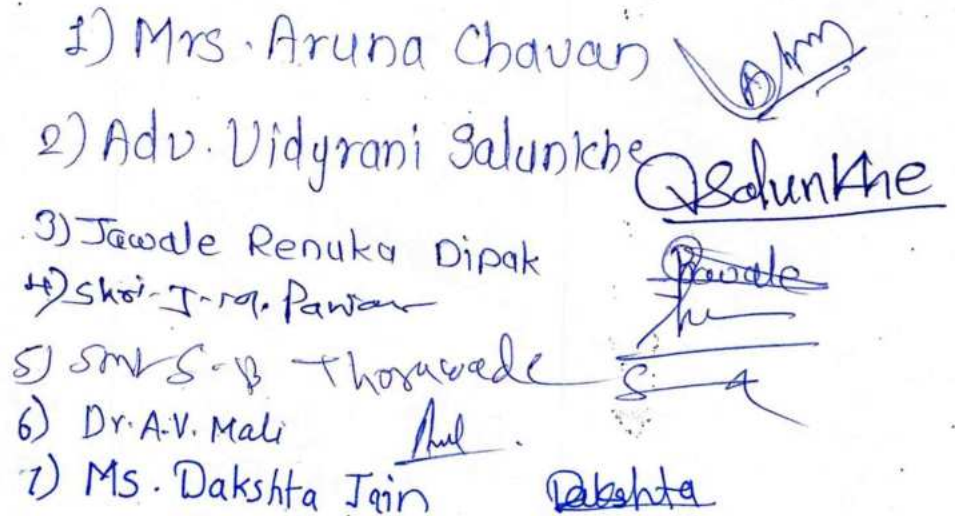 1) Mrs. Aruna Chavan
2) Adv. Vidyrani Salunkhe Salunkhe
3) Jawale Renuka Dipak Jawale
4) Shri. J. M. Pawar
5) Smt S. B Thorawade
6) Dr. A.V. Mali
7) Ms. Dakshta Jain Dakshta